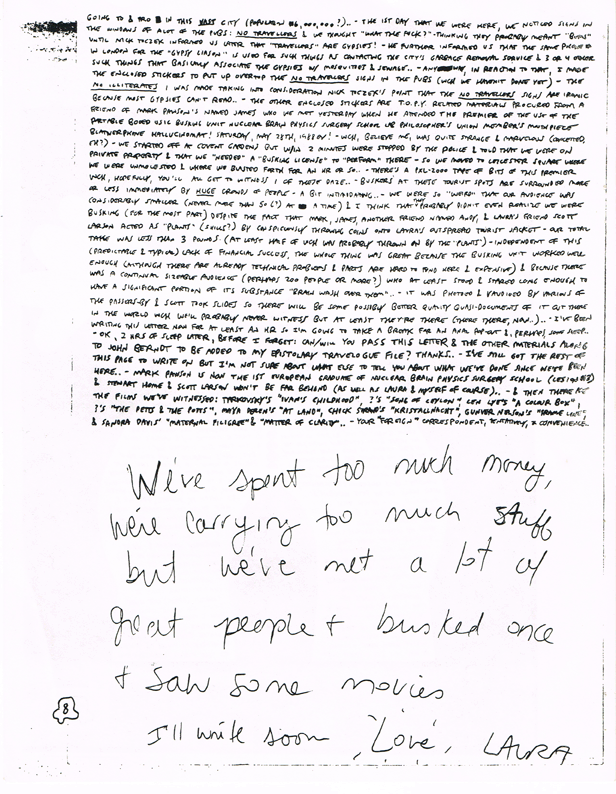 GOING TO & FRO IN THIS VAST CITY (POPULATION 6,000,000?).. - THE 1ST DAY THAT WE WERE HERE, WE NOTICED SIGNS IN
THE WINDOWS OF ALOT OF THE PUBS: NO TRAVELLERS & WE THOUGHT "WHAT THE FUCK?" - THINKING THEY PROBABLY MEANT "BUMS"
UNTIL NICK TOCZEK INFORMED US LATER THAT "TRAVELLERS" ARE GYPSIES! - HE FURTHER INFORMED US THAT THE SAME PHONE #
IN LONDON FOR THE "GYPSY LIASON" IS USED FOR SUCH THINGS AS CONTACTING THE CITY'S GARBAGE REMOVAL SERVICE & 2 OR 4 OTHER
SUCH THINGS THAT BASICALLY ASSOCIATE THE GYPSIES W/ MOSQUITOES & SEWAGE.. - IN REACTION TO THAT, I MADE
THE ENCLOSED STICKERS TO PUT UP OVER TOP THE NO TRAVELLERS SIGNS IN THE PUBS (WCH WE HAVEN'T DONE YET) - THE
NO ILLITERATES I WAS MADE TAKING INTO CONSIDERATION NICK TOCZEK'S POINT THAT THE NO TRAVELLERS SIGNS ARE IRONIC
BECAUSE MOST GYPSIES CAN'T READ.. - THE OTHER ENCLOSED STICKERS ARE T.O.P.Y. RELATED MATERIAL PROCURED FROM A
FRIEND OF MARK PAWSON'S NAMED JAMES WHO WE MET YESTERDAY WHEN HE ATTENDED THE PREMIER OF THE USE OF THE
PORTABLE BOOED USIC BUSKING UNIT NUCLEAR BRAIN PHYSICS SURGERY SCHOOL LAB PHILOSOPHER'S UNION MEMBER'S MOUTHPIECE
BLATNERPHONE HALLUCINOMAT! SATURDAY, MAY 28TH, 1988EV! - WCH, BELIEVE ME, WAS QUITE STRANGE & MARVELOUS (CONCEITED,
EH?) - WE STARTED OFF AT COVENT GARDENS BUT W/IN 2 MINUTES WERE STOPPED BY THE POLICE & TOLD THAT WE WERE ON
PRIVATE PROPERTY & THAT WE "NEEDED" A "BUSKING LICENSE" TO "PERFORM" THERE - SO WE MOVED TO LEICESTER SQUARE WHERE
WE WERE UNMOLESTED & WHERE WE BUSTED FORTH FOR AN HR OR SO.. - THERE'S A PXL-2000 TAPE OF BITS OF THIS PREMIER
WCH, HOPEFULLY, YOU'LL ALL GET TO WITNESS 1 OF THESE DAZE.. - BUSKERS AT THESE TOURIST SPOTS ARE SURROUNDED MORE
OR LESS IMMEDIATELY BY HUGE CROWDS OF PEOPLE - A BIT INTIMIDATING.. - WE WERE SO "WEIRD" THAT OUR AUDIENCE WAS
CONSIDERABLY SMALLER (NEVER MORE THAN 50(?) AT A TIME) & I THINK THAT THEY PROBABLY DIDN'T EVEN REALIZE WE WERE
BUSKING (FOR THE MOST PART) DESPITE THE FACT THAT MARK, JAMES, ANOTHER FRIEND NAMED ANDY, & LAURA'S FRIEND SCOTT
LARSON ACTED AS "PLANTS" (SHILLS?) BY CONSPICUOUSLY THROWING COINS ONTO LAURA'S OUTSPREAD TOURIST JACKET - OUR TOTAL
TAKE WAS LESS THAN 3 POUNDS. (AT LEAST HALF OF WCH WAS PROBABLY THROWN ON BY THE "PLANTS") - INDEPENDENT OF THIS
(PREDICTABLE & TYPICAL) LACK OF FINANCIAL SUCCESS, THE WHOLE THING WAS GREAT BECAUSE THE BUSKING UNIT WORKED WELL
ENOUGH (ALTHOUGH THERE ARE ALREADY TECHNICAL PROBLEMS & PARTS ARE HARD TO FIND HERE & EXPENSIVE) & BECAUSE THERE
WAS A CONTINUAL SIZEABLE AUDIENCE (PERHAPS 200 PEOPLE OR MORE?) WHO AT LEAST STOOD & STARED LONG ENOUGH TO
HAVE A SIGNIFICANT PORTION OF ITS SUBSTANCE "BRAIN WASH OVER THEM".. - IT WAS PHOTOED & VAUDIOED BY VARIOUS OF
THE PASSERSBY & SCOTT TOOK SLIDES SO THERE WILL BE SOME POSSIBLY BETTER QUALITY QUASI-DOCUMENTS OF IT OUT THERE
IN THE WORLD WCH WE'LL PROBABLY NEVER WITNESS BUT AT LEAST THEY'RE THERE (THERE THERE, NOW..).. - I'VE BEEN
WRITING THIS LETTER NOW FOR AT LEAST AN HR SO I'M GOING TO TAKE A BREAK FOR AN ANAL PAP-OUT &, PERHAPS, SOME SLEEP..
- OK, 2 HRS OF SLEEP LATER, BEFORE I FORGET: CAN/WILL YOU PASS THIS LETTER & THE OTHER MATERIALS ALONG
TO JOHN BERNDT TO BE ADDED TO MY EPISTOLARY TRAVELOGUE FILE? THANKS.. - I'VE STILL GOT THE REST OF
THIS PAGE TO WRITE ON BUT I'M NOT SURE ABOUT WHAT ELSE TO TELL YOU ABOUT WHAT WE'VE DONE SINCE WE'VE BEEN
HERE.. - MARK PAWSON IS NOW THE 1ST EUROPEAN GRADUATE OF NUCLEAR BRAIN PHYSICS SURGERY SCHOOL
& STEWART HOME & SCOTT LARSON WON'T BE FAR BEHIND (AS WELL AS LAURA & MYSELF OF COURSE).. - & THEN THERE ARE
THE FILMS WE'VE WITNESSED: TARKOVSKY'S "IVAN'S CHILDHOOD", ?'S "SONG OF CEYLON", LEN LYE'S "A COLOUR BOX",
?'S "THE PETTS & THE POTTS", MAYA DEREN'S "AT LAND", CHICK STRAND'S "KRISTALLNACHT", GUNVOR NELSON'S "FRAME LINE",
& SANDRA DAVIS' "MATERNAL FILIGREE" & "MATTER OF CLARITY".. - YOUR "FOREIGN" CORRESPONDENT, TENTATIVELY, A CONVENIENCE
We've spent too much money,
we're carrying too much stuff
but we've met a lot of
great people + busked once
+ saw some movies
I'll write soon
'Love', LAURA
8